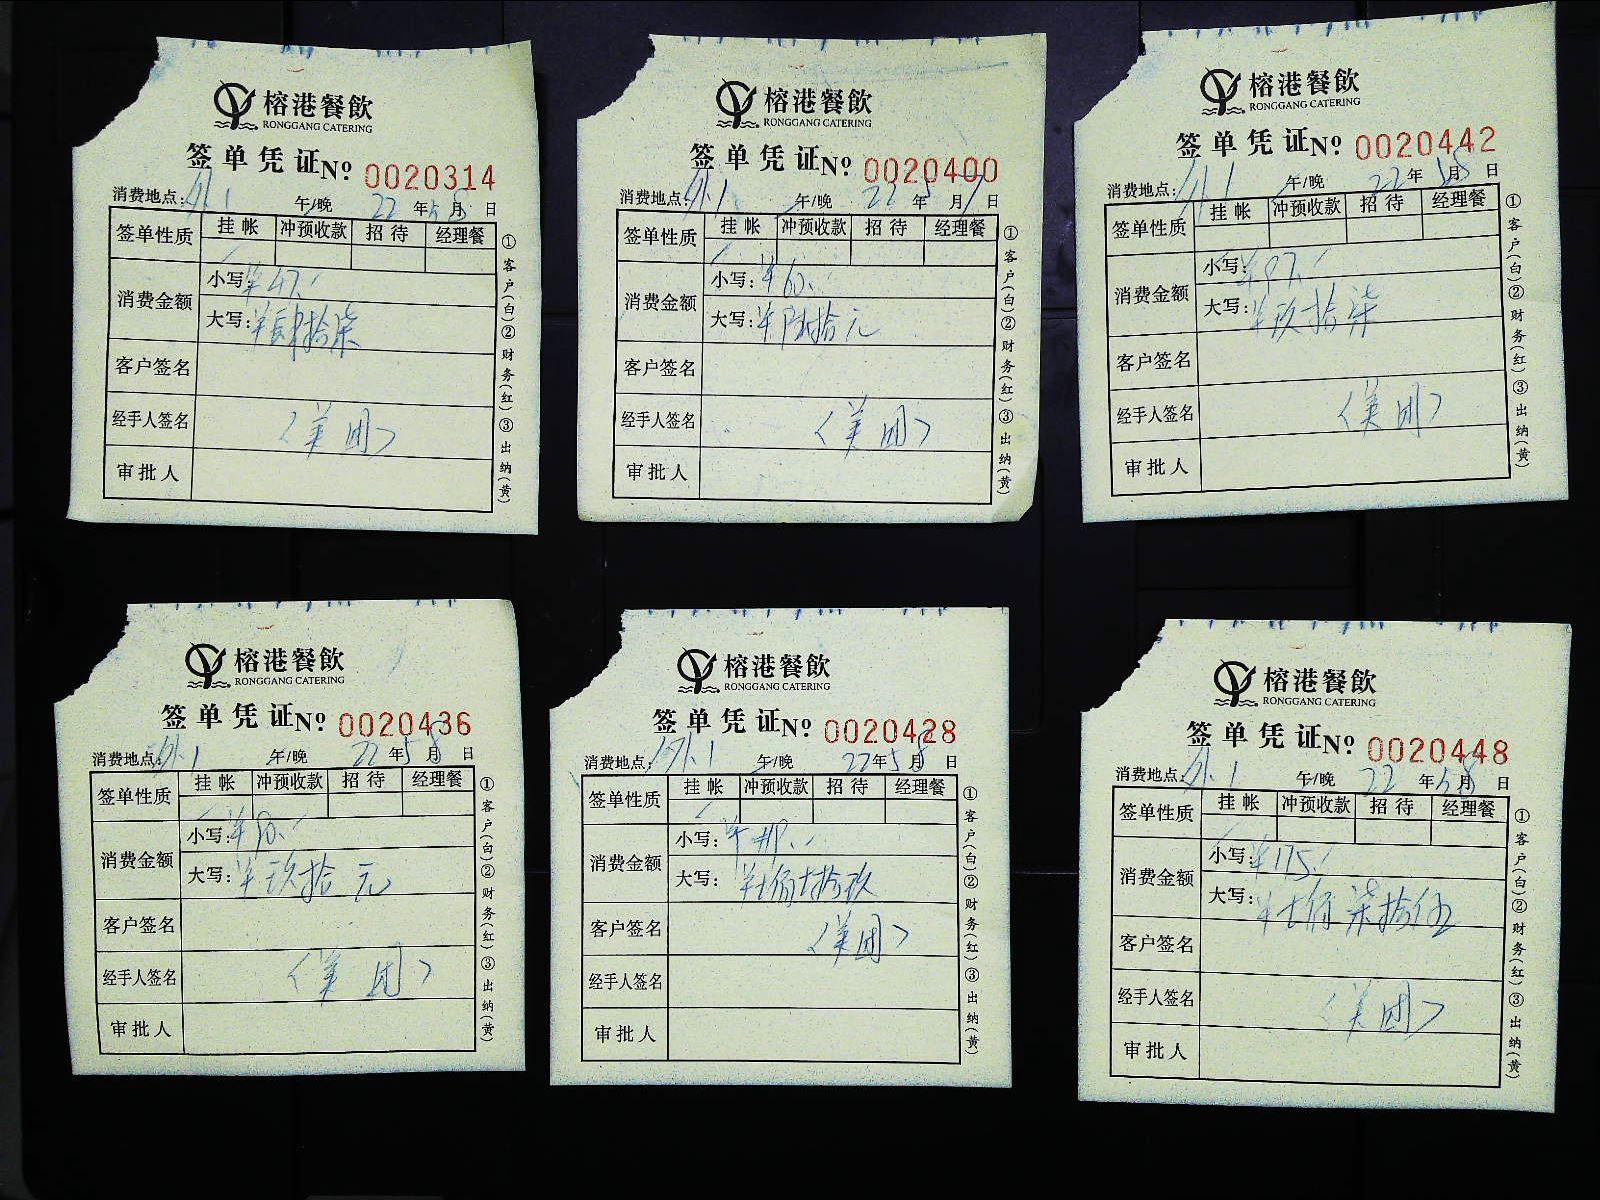 榕港餐飲
RONGGANG CATERING
签单凭证 Nº 0020314
消费地点: 外1 午/晚 22年5月5日
签单性质 挂帐 冲预收款 招待 经理餐
消费金额 小写: ¥47.
大写: ¥肆拾柒
客户签名
经手人签名 〈美团〉
审批人
①客户(白)②财务(红)③出纳(黄)
榕港餐飲
RONGGANG CATERING
签单凭证 Nº 0020400
消费地点: 外.1 午/晚 22年5月7日
签单性质 挂帐 冲预收款 招待 经理餐
消费金额 小写: ¥60.
大写: ¥陆拾元
客户签名
经手人签名 〈美团〉
审批人
①客户(白)②财务(红)③出纳(黄)
榕港餐飲
RONGGANG CATERING
签单凭证 Nº 0020442
消费地点: 外1 午/晚 22年5月8日
签单性质 挂帐 冲预收款 招待 经理餐
消费金额 小写: ¥97.
大写: ¥玖拾柒
客户签名
经手人签名 〈美团〉
审批人
①客户(白)②财务(红)③出纳(黄)
榕港餐飲
RONGGANG CATERING
签单凭证 Nº 0020436
消费地点: 外.1 午/晚 22年5月8日
签单性质 挂帐 冲预收款 招待 经理餐
消费金额 小写: ¥90.
大写: ¥玖拾元
客户签名
经手人签名 〈美团〉
审批人
①客户(白)②财务(红)③出纳(黄)
榕港餐飲
RONGGANG CATERING
签单凭证 Nº 0020428
消费地点: 外.1 午/晚 22年5月8日
签单性质 挂帐 冲预收款 招待 经理餐
消费金额 小写: ¥
大写: ¥佰拾玖
客户签名 〈美团〉
经手人签名
审批人
①客户(白)②财务(红)③出纳(黄)
榕港餐飲
RONGGANG CATERING
签单凭证 Nº 0020448
消费地点: 外.1 午/晚 22年5月8日
签单性质 挂帐 冲预收款 招待 经理餐
消费金额 小写: ¥175.
大写: ¥佰柒拾伍
客户签名
经手人签名 〈美团〉
审批人
①客户(白)②财务(红)③出纳(黄)